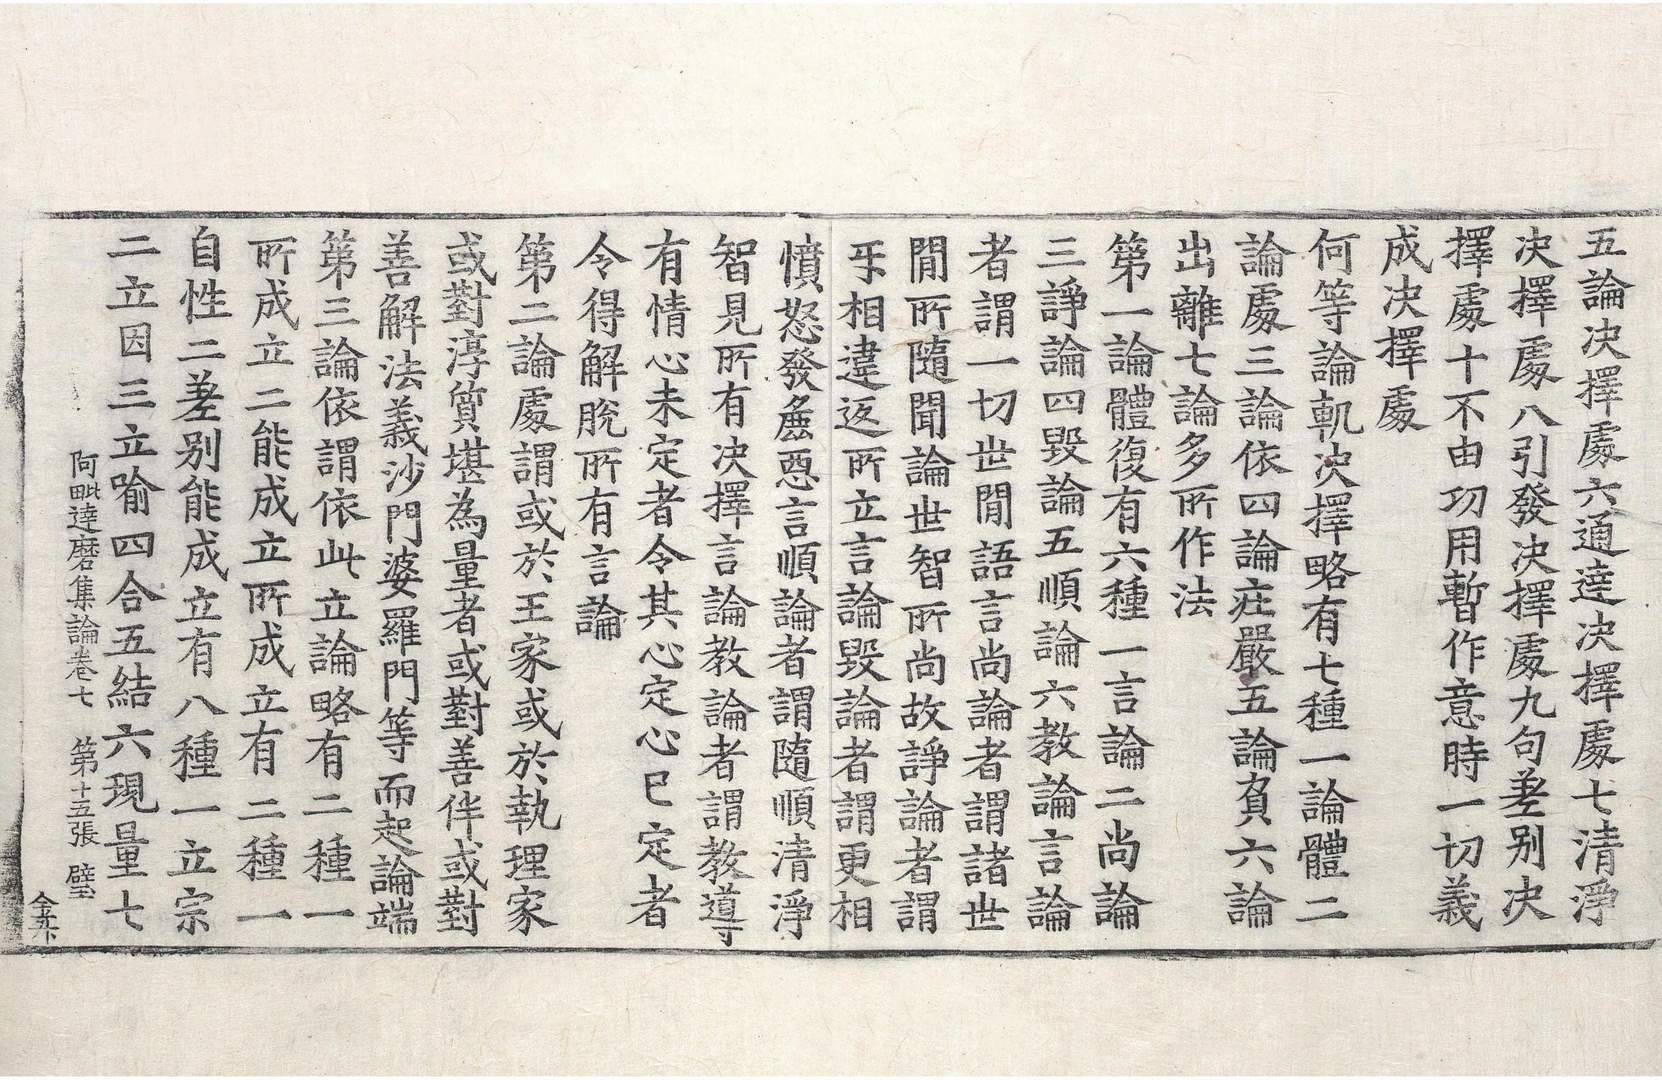 五論决擇處六通達决擇處七清淨
决擇處八引發决擇處九句差别决
擇處十不由功用暫作意時一切義
成决擇處
何等論軌决擇略有七種一論體二
論處三論依四論庄嚴五論負六論
出離七論多所作法
第一論體復有六種一言論二尚論
三諍論四毀論五順論六教論言論
者謂一切世閒語言尚論者謂諸世
閒所隨聞論世智所尚故諍論者謂
㸦相違返所立言論毀論者謂更相
憤怒發麁惡言順論者謂隨順清淨
智見所有决擇言論教論者謂教導
有情心未定者令其心定心已定者
令得解脫所有言論
第二論處謂或於王家或於執理家
或對淳質堪為量者或對善伴或對
善解法義沙門婆羅門等而起論端
第三論依謂依此立論略有二種一
所成立二能成立所成立有二種一
自性二差别能成立有八種一立宗
二立因三立喻四合五結六現量七
阿毗達磨集論卷七 第十五張 壁